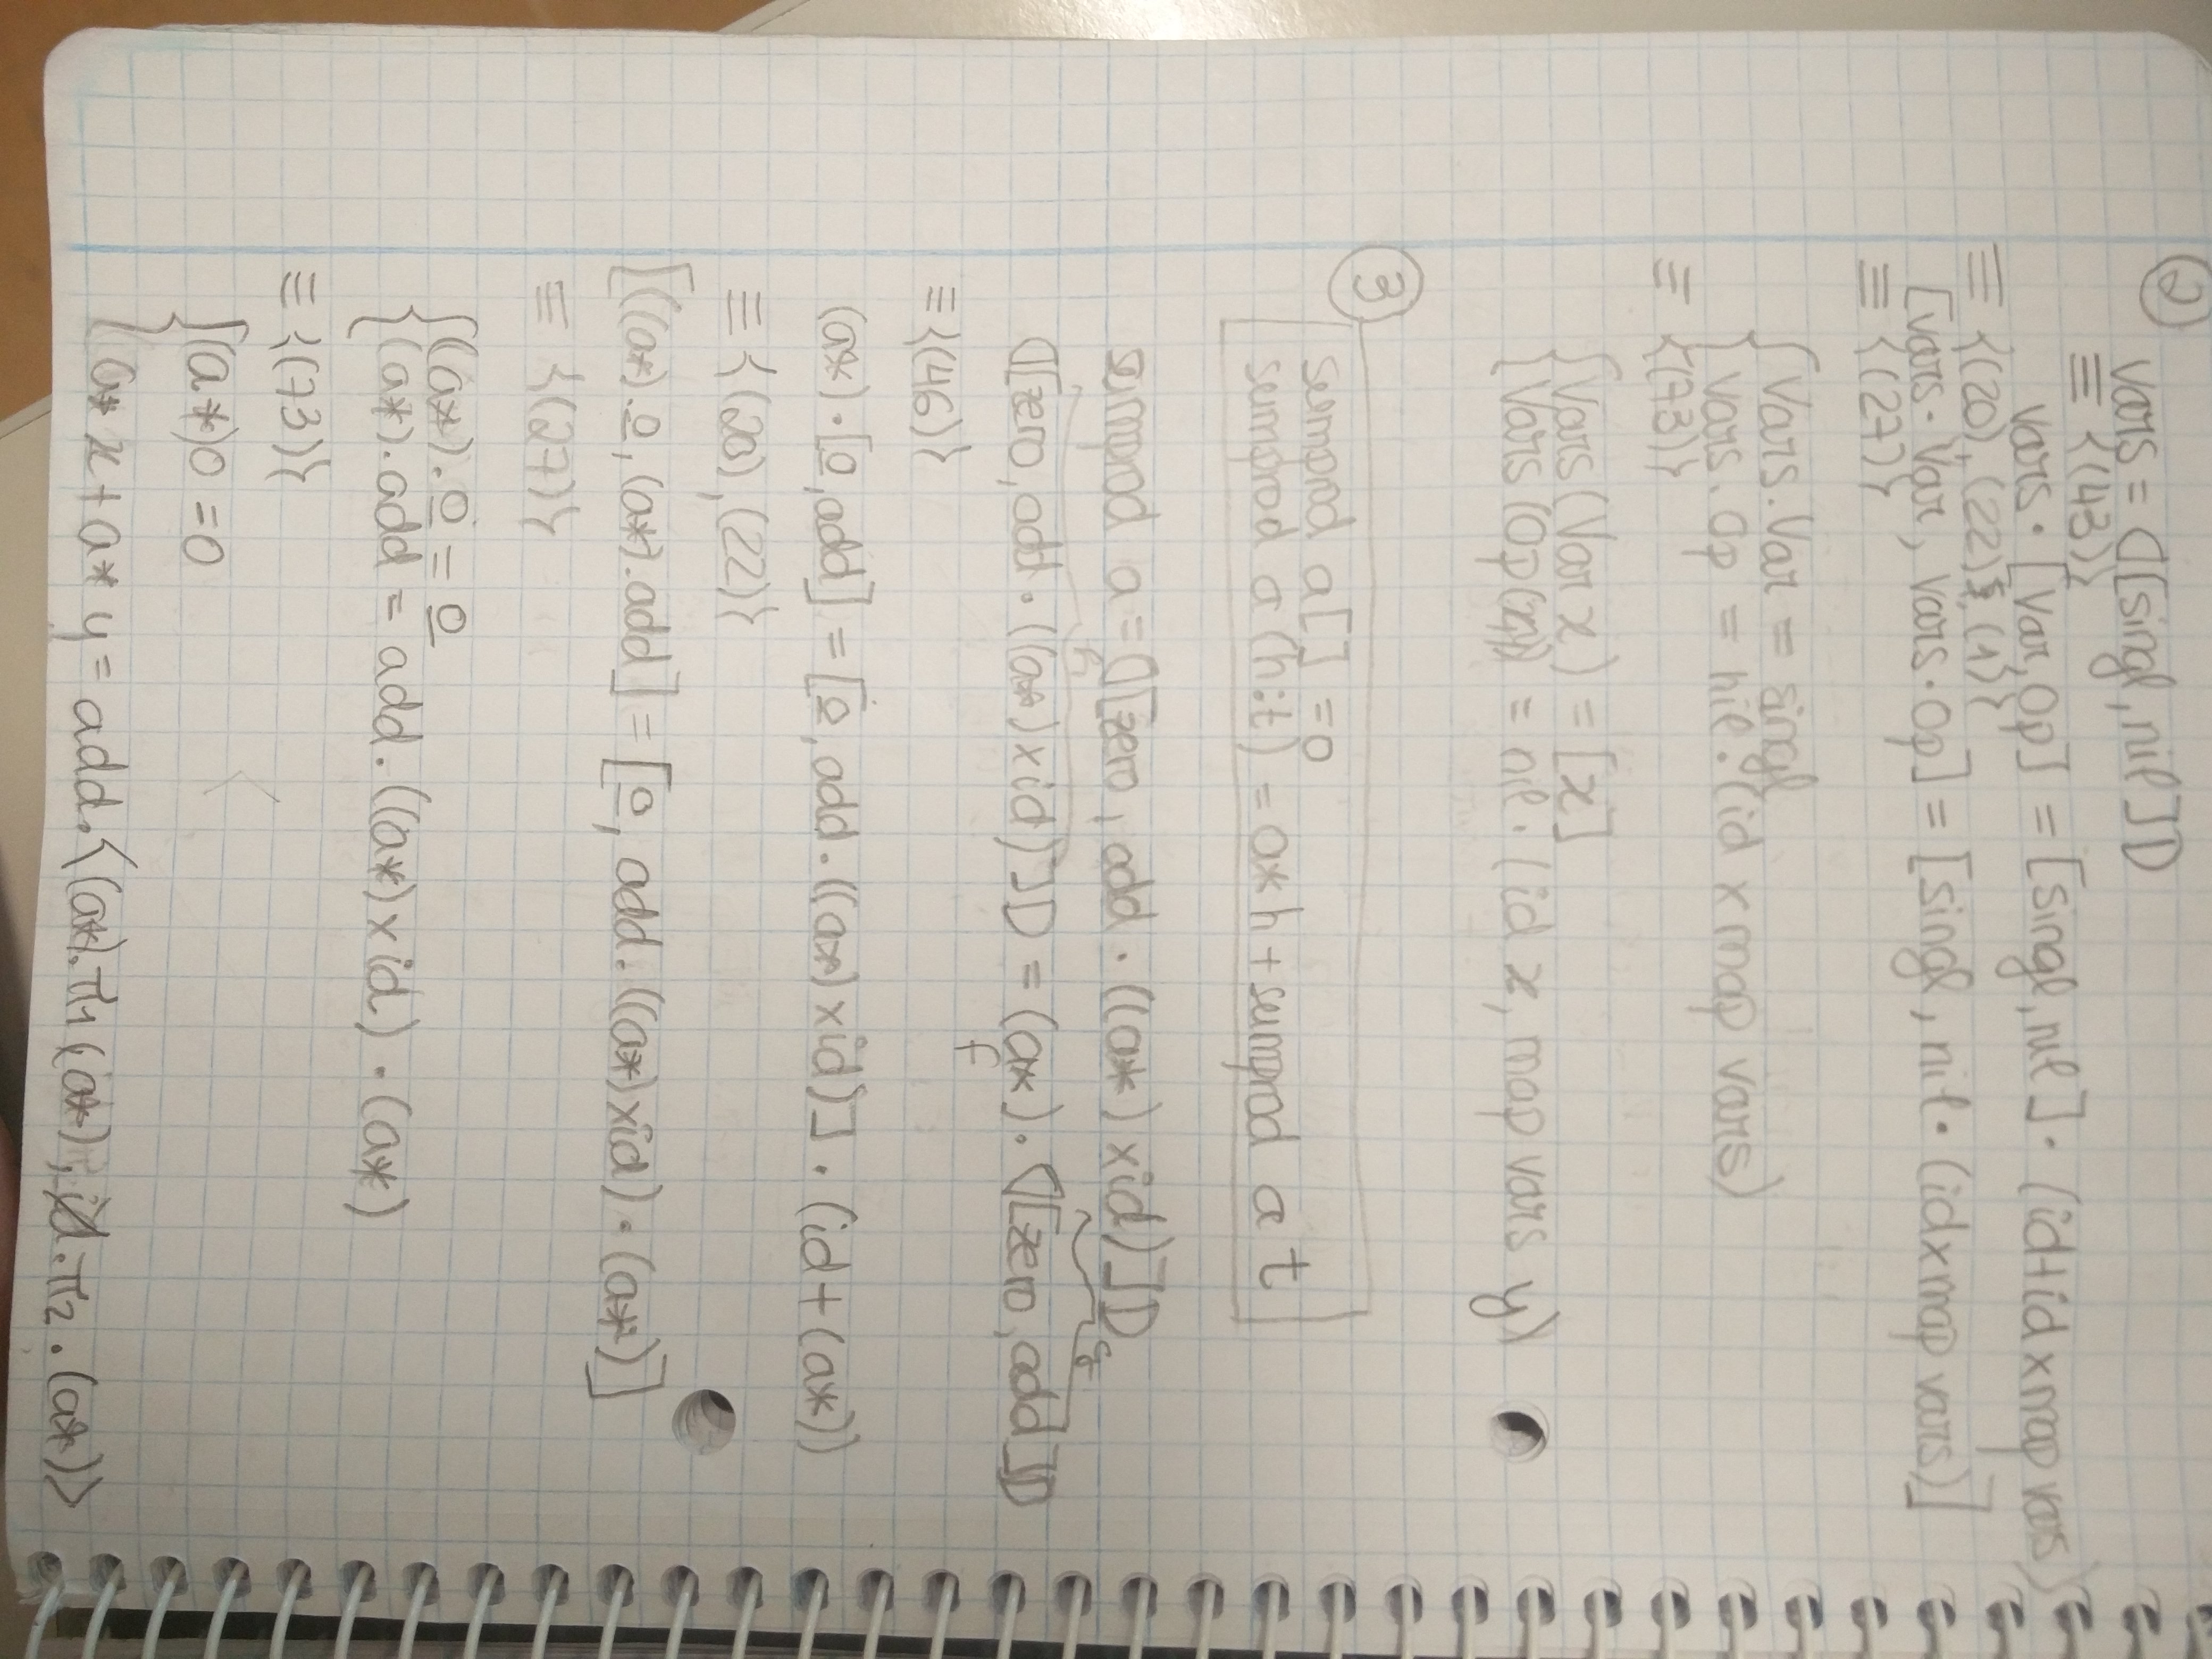 ②
vars = ⦇[singl, nil]⦈
≡ {(43)}
vars · [Var, Op] = [singl, nil] · (id + id × map vars)
≡ {(20), (22), (1)}
[vars · Var, vars · Op] = [singl, nil · (id × map vars)]
≡ {(27)}
{ Vars . Var = singl
{ vars . Op = nil · (id × map vars)
≡ {(73)}
{ Vars (Var x) = [x]
{ Vars (Op(x,y)) = nil · (id x, map vars y)
③
sumprod a [] = 0
sumprod a (h:t) = a*h + sumprod a t
sumprod a = ⦇[zero, add · ((a*) × id)]⦈
h g
⦇[zero, add · ((a*) × id)]⦈ = (a*) · ⦇[zero, add]⦈
f
≡ {(46)}
(a*) · [0, add] = [0, add · ((a*) × id)] · (id + (a*))
≡ {(20), (22)}
[((a*) . 0, (a*) . add] = [0, add . ((a*) × id) · (a*)]
≡ {(27)}
{ (a*) . 0 = 0
{ (a*) . add = add . ((a*) × id) · (a*)
≡ {(73)}
{ (a*) 0 = 0
{ a* x + a* y = add · <(a*) . π1 (a*), id . π2 · (a*)>